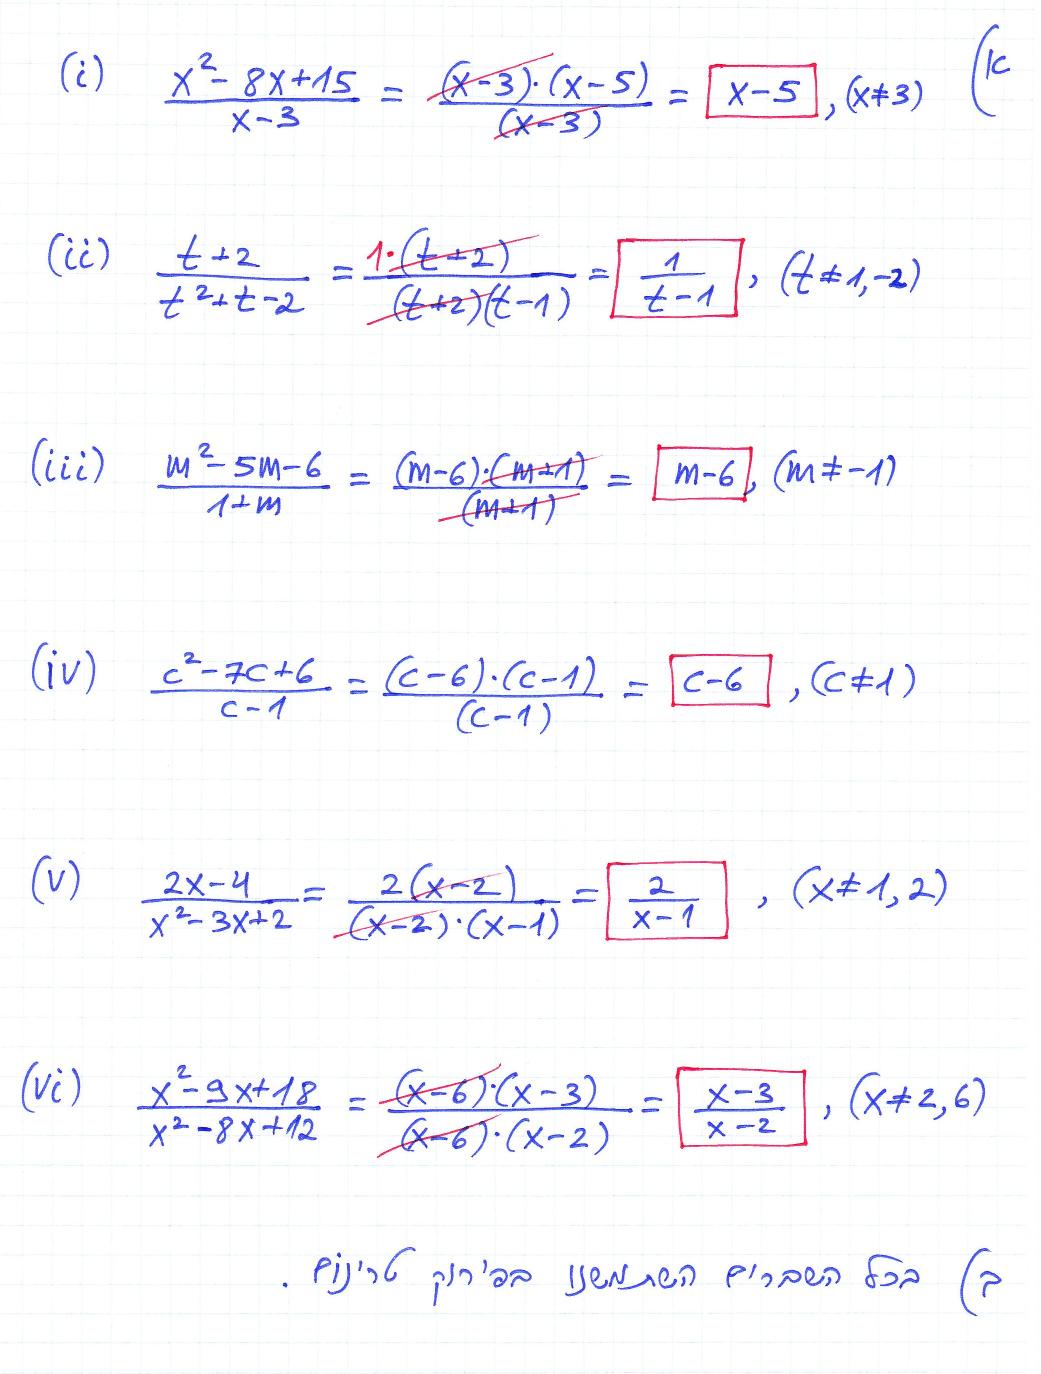 א) (i) x²-8x+15 / x-3 = (x-3)·(x-5) / (x-3) = x-5 , (x≠3)
(ii) t+2 / t²+t-2 = 1·(t+2) / (t+2)(t-1) = 1 / t-1 , (t≠1,-2)
(iii) m²-5m-6 / 1+m = (m-6)·(m+1) / (m+1) = m-6 , (m≠-1)
(iv) c²-7c+6 / c-1 = (c-6)·(c-1) / (c-1) = c-6 , (c≠1)
(v) 2x-4 / x²-3x+2 = 2(x-2) / (x-2)·(x-1) = 2 / x-1 , (x≠1,2)
(vi) x²-9x+18 / x²-8x+12 = (x-6)·(x-3) / (x-6)·(x-2) = x-3 / x-2 , (x≠2,6)
ב) בכל השברים השתמשנו בפירוק טרינום .